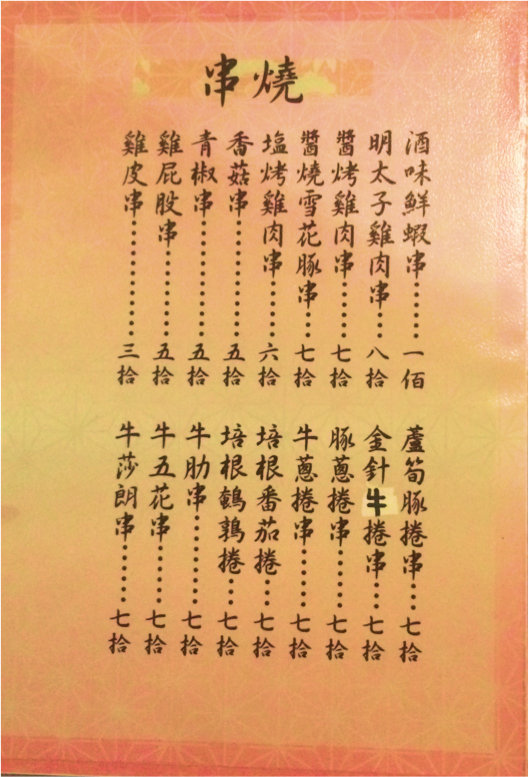 串燒
酒味鮮蝦串……一佰
明太子雞肉串…八拾
醬烤雞肉串……七拾
醬燒雪花豚串…七拾
塩烤雞肉串……六拾
香菇串…………五拾
青椒串…………五拾
雞屁股串………五拾
雞皮串…………三拾
蘆筍豚捲串…七拾
金針牛捲串…七拾
豚蔥捲串……七拾
牛蔥捲串……七拾
培根番茄捲…七拾
培根鵪鶉捲…七拾
牛肋串………七拾
牛五花串……七拾
牛莎朗串……七拾